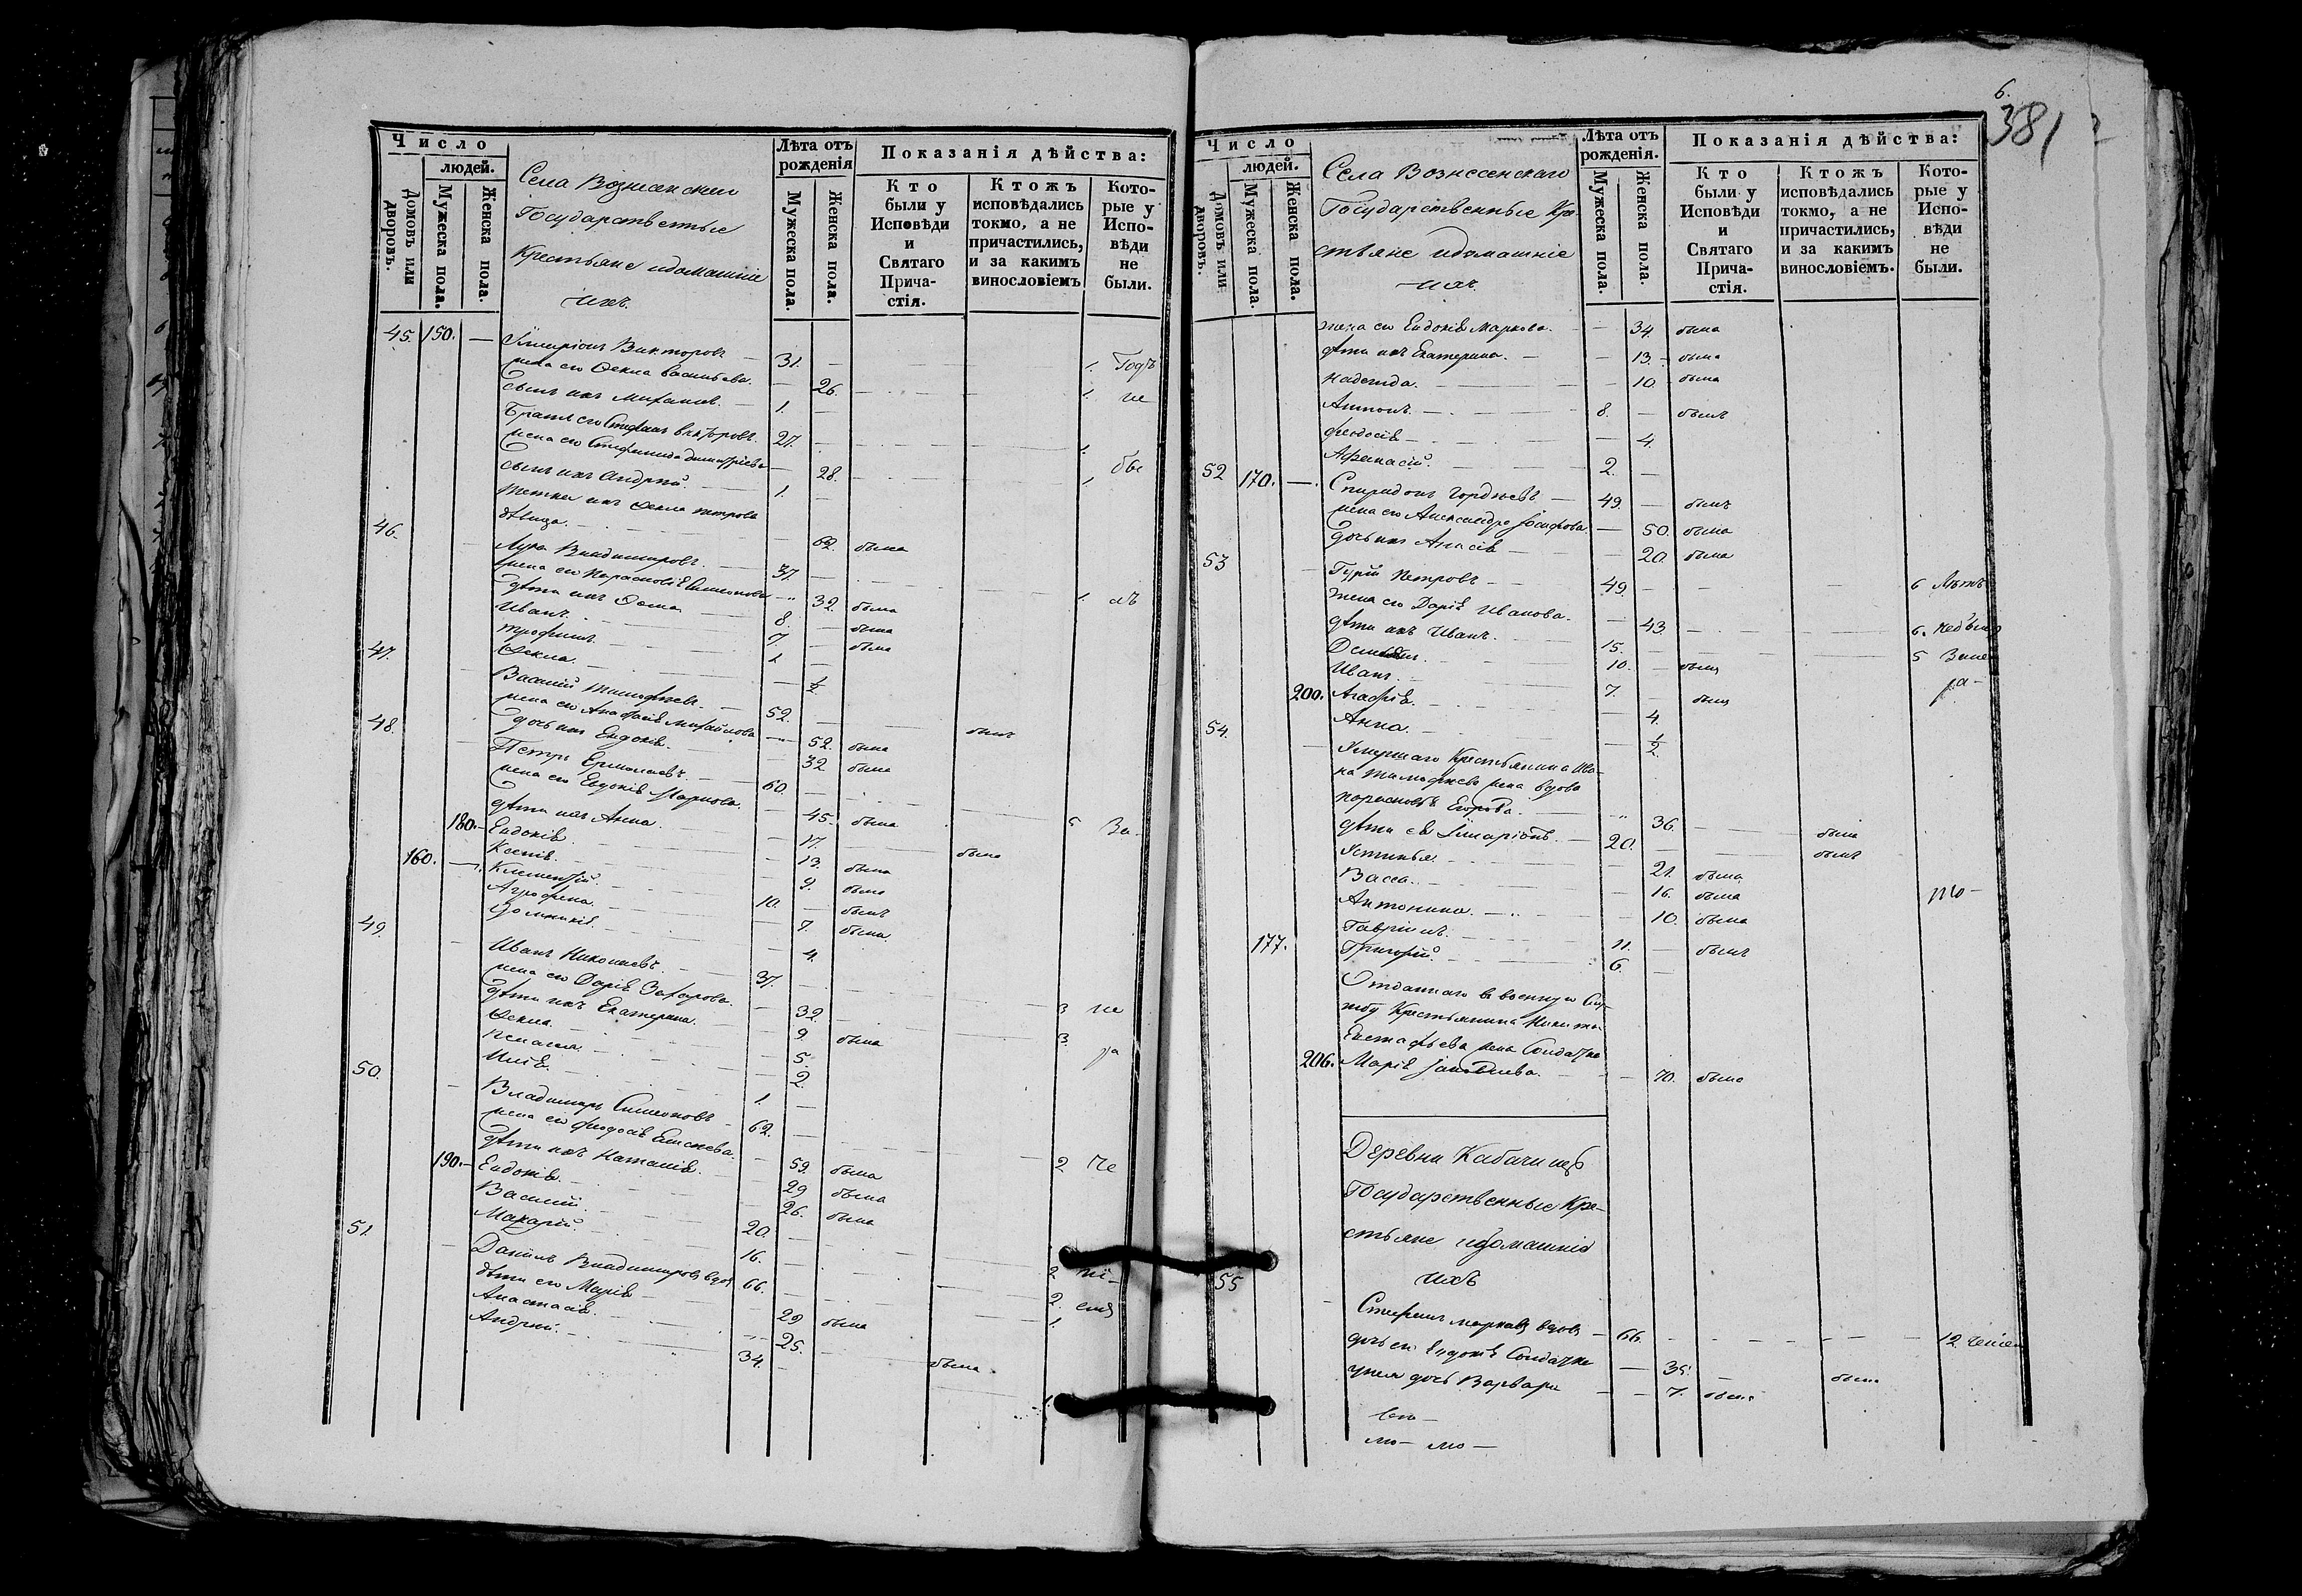 Число
людей.
Домовъ или дворовъ.
Мужеска пола.
Женска пола.
Села Вознесенскаго
Государственные
Крестьяне идомашніе
ихъ.
Лѣта отъ рожденія
Мужеска пола.
Женска пола.
Показанія дѣйства:
Кто были у Исповѣди и Святаго Прича-стія.
Ктожъ исповѣдались токмо, а не причастились, и за какимъ винословіемъ
Кото-рые у Испо-вѣди не были.
45. 150. — Иларіонъ Викторовъ — 31. — 1. Годъ
жена его Фекла Васильева. — 26. — 1. не
сынъ ихъ — 1. —
Братъ его Стефанъ Викторовъ. 27. — 1.
жена его Стефанида Димитріева — 28. — 1 бы
сынъ ихъ Андрей. — 1. —
тетка ихъ Фекла Петрова
дѣвица. — 62. была
46. — Лука Владимировъ. — 37. — 1. лъ
жена его Парасковія Симеонова — 32. была
дѣти ихъ Фома — 8. — былъ
Иванъ. — 7. — былъ
Трофимъ. — 1 —
Фекла. — ½
47. Василій Тимофѣевъ. — 52. — былъ
жена его Михайлова — 52. была
дочь ихъ Евдокія. — 32 была
48. — Петръ Ермолаевъ. — 60. — 5 За-
жена его Евдокія Маркова. — 45. была
дѣти ихъ Анна. — 17. — была
180. — Евдокія. — 13. была
Ксенія. — 9. была
160. — Климентій. — 10. — былъ
Агрофена. — 7. была
Домникія. — 4.
49. — Иванъ Николаевъ. — 37. — 3 не
жена его Дарія Захарова. — 32. — 3.
дѣти ихъ Екатерина. — 9. была ра
Фекла. — 5.
Пелагея. — 2.
Илія. — 1. —
50. — Владимиръ Симеоновъ — 62. — 2 Не
жена его Феодосія Елисеева. — 59. была
дѣти ихъ Наталія. — 29 была
190. — Евдокія. — 26. была
Василій. — 20. — 2
Макарій. — 16. — 2.
51. — Даніилъ Владимировъ вдов 66. — 1.
дѣти его Марія — 29 была
Анастасія. — 25. — была
Андрей. — 34. — 1
6.
381
Число
людей.
Домовъ или дворовъ.
Мужеска пола.
Женска пола.
Села Вознесенскаго
Государственные Кре-
стьяне идомашніе
ихъ.
Лѣта отъ рожденія.
Мужеска пола.
Женска пола.
Показанія дѣйства:
Кто были у Исповѣди и Святаго Прича-стія.
Ктожъ исповѣдались токмо, а не причастились, и за какимъ винословіемъ.
Кото-рые у Испо-вѣди не были.
жена его Евдокія Маркова. — 34. была
дѣти ихъ Екатерина. — 13. — была
Надежда. — 10. была
Антонъ. — 8. — былъ
Феодосія — 4.
Афанасій. — 2. —
52 170. — Спиридонъ Гордѣевъ — 49. — былъ
жена его Александра Іосифова. — 50. была
дочь ихъ Анисія — 20. была
53 — Гурій Петровъ — 49. — 6 Лѣтъ
жена его Дарія Иванова. — 43. — 6.
дѣти ихъ Иванъ. — 15. — 5
10. — былъ
Иванъ. — 7. — былъ
200. Агафія. — 4.
Анна. — ½
54. — Умершаго Крестьянина Ива-
на Тимофѣева жена вдова
Парасковья Егорова. — 36. — была
дѣти ея Иларіонъ. — 20. — былъ
Устинья. — 21. была
Васса. — 16. была
Антонина. — 10. была
Гавріилъ. — 11. — былъ
177. Григорій. — 6. —
Отданнаго в военную Слу-
жбу Крестьянина Никиты
Евстафьева жена Солдатка
206. Марія — 70. была
Деревни
Государственные Кре-
стьяне идомашніе
ихъ
55 — Стефанъ Марковъ вдовъ — 66. — 12
дочь его Евдокія Солдатка — 35. — была
унея дочь Варвара — 7. была